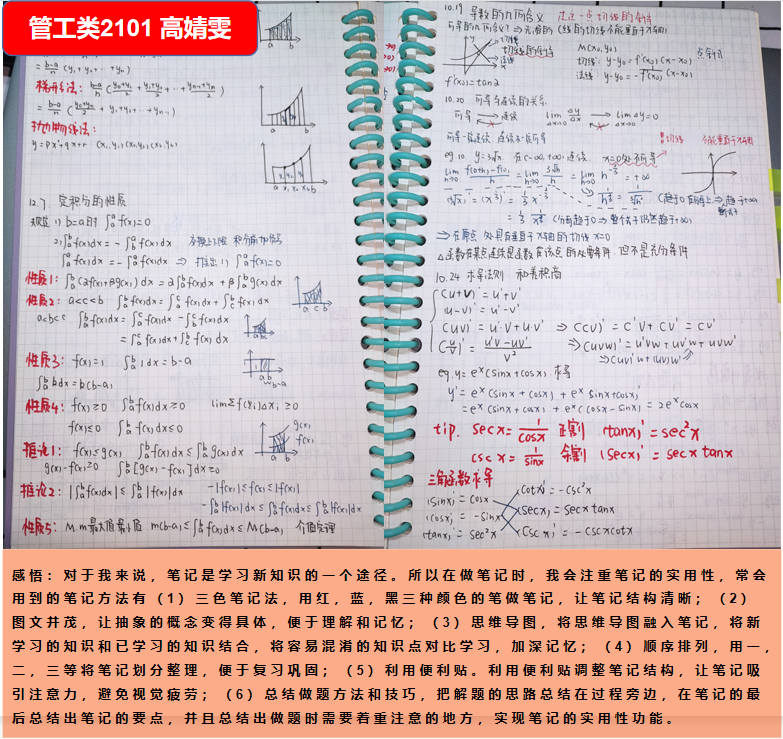 管工类2101 高婧雯
a b
= b-a/n (y₁+y₂+…+yₙ)
梯形法: b-a/n (y₀+y₁/2 + y₁+y₂/2 +…+ yₙ₋₁+yₙ/2)
= b-a/n (y₀+yₙ/2 + y₁+y₂+…+yₙ₋₁)
抛物线法:
y=px²+qx+r (x₀,y₀)(x₁,y₁)(x₂,y₂)
12.7. 定积分的性质
规定 1) b=a时 ∫ₐᵃf(x)=0
2) ∫ₐᵇf(x)dx=-∫ᵇₐf(x)dx
∫ₐᵃf(x)dx=-∫ₐᵃf(x)dx ⇒ 推出1) ∫ₐᵃf(x)=0
性质1: ∫ₐᵇ(2f(x)+βg(x))dx=2∫ₐᵇf(x)dx+β∫ₐᵇg(x)dx
性质2: a<c<b ∫ₐᵇf(x)dx=∫ₐᶜf(x)dx+∫ᶜᵇf(x)dx
a c b
a<b<c ∫ₐᵇf(x)dx=∫ₐᶜf(x)dx-∫ᵇᶜf(x)dx
=∫ₐᶜf(x)dx+∫ᶜᵇf(x)dx
性质3: f(x)=1 ∫ₐᵇ1dx=b-a
a b
b-a
∫ₐᵇkdx=k(b-a)
性质4: f(x)≥0 ∫ₐᵇf(x)dx≥0 limΣf(ξᵢ)Δxᵢ≥0
f(x)≤0 ∫ₐᵇf(x)dx≤0
g(x)
f(x)
a b
推论1: f(x)≤g(x) ∫ₐᵇf(x)dx≤∫ₐᵇg(x)dx
g(x)-f(x)≥0 ∫ₐᵇ[g(x)-f(x)]dx≥0
推论2: |∫ₐᵇf(x)dx|≤∫ₐᵇ|f(x)|dx -|f(x)|≤f(x)≤|f(x)|
-∫ₐᵇ|f(x)|dx≤∫ₐᵇf(x)dx≤∫ₐᵇ|f(x)|dx
性质5: M.m最大值最小值 m(b-a)≤∫ₐᵇf(x)dx≤M(b-a) 介值定理
10.19 导数的几何意义 过这一点切线的斜率
可导的几何意义? ⇒ 光滑的 (线的切线不能垂直于x轴)
切线的斜率 M(x₀,y₀)
切线: y-y₀=f'(x₀)(x-x₀)
法线: y-y₀=-1/f'(x₀)(x-x₀)
f'(x)=tan2
10.20 可导与连续的关系
可导 ⇄ 连续 lim Δx→0 Δy/Δx lim Δx→0 Δy=0
可导一定连续 连续不一定可导
切线 不能垂直于x轴
eg.10. y=³√x 在(-∞,+∞)连续 x=0处不可导
lim h→0 f(0+h)-f(0)/h = lim h→0 ³√h/h = lim h→0 h^(-2/3) = +∞
⇒在原点处具有垂直于x轴的切线 x=0
△函数在某点连续是函数在该点可导的必要条件 但不是充分条件
10.24 求导法则 和差积商
(u+v)'=u'+v'
(u-v)'=u'-v'
(uv)'=u'v+uv' ⇒ (cv)'=c'v+cv'=cv'
(u/v)'=u'v-uv'/v² ⇒ (uvw)'=u'vw+uv'w+uvw'
eg.y=eˣ(sinx+cosx) 求导
y'=eˣ(sinx+cosx)+eˣ(sinx+cosx)'
=eˣ(sinx+cosx)+eˣ(cosx-sinx)=2eˣcosx
tip. secx=1/cosx 正割 (tanx)'=sec²x
cscx=1/sinx 余割 (secx)'=secx tanx
三角函数求导
(sinx)'=cosx (cotx)'=-csc²x
(cosx)'=-sinx (secx)'=secx tanx
(tanx)'=sec²x (cscx)'=-cscxcotx
感悟：对于我来说，笔记是学习新知识的一个途径。所以在做笔记时，我会注重笔记的实用性，常会
用到的笔记方法有（1）三色笔记法，用红，蓝，黑三种颜色的笔做笔记，让笔记结构清晰；（2）
图文并茂，让抽象的概念变得具体，便于理解和记忆；（3）思维导图，将思维导图融入笔记，将新
学习的知识和已学习的知识结合，将容易混淆的知识点对比学习，加深记忆；（4）顺序排列，用一，
二，三等将笔记划分整理，便于复习巩固；（5）利用便利贴。利用便利贴调整笔记结构，让笔记吸
引注意力，避免视觉疲劳；（6）总结做题方法和技巧，把解题的思路总结在过程旁边，在笔记的最
后总结出笔记的要点，并且总结出做题时需要着重注意的地方，实现笔记的实用性功能。